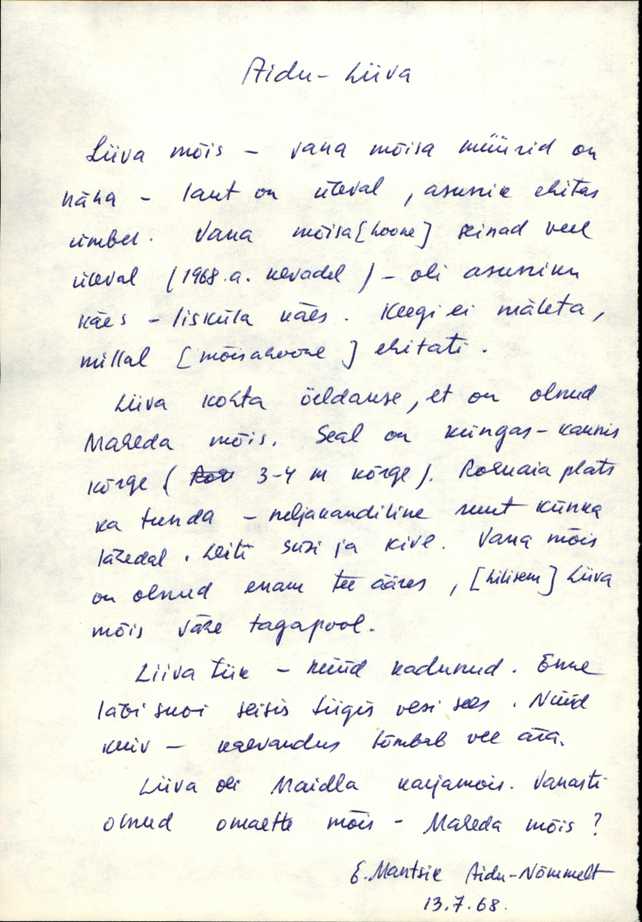 Aidu-Liiva
Liiva mõis – vana mõisa müürid on
näha – laut on üleval, asunik ehitas
ümber. Vana mõisa[hoone] seinad veel
üleval (1968.a. kevadel) – oli asuniku
käes – Iisküla käes. Keegi ei mäleta,
millal [mõisahoone] ehitati.
Liiva kohta öeldakse, et on olnud
Maheda mõis. Seal on küngas – kaunis
kõrge (3-4 m kõrge). Rohuaia plats
ka tunda – neljakandiline suur künka
lähedal. Leiti süsi ja kive. Vana mõis
on olnud enam tee ääres, [hilisem] Liiva
mõis vähe tagapool.
Liiva tiik – nüüd kadunud. Enne
läbi suvi seisis tiigis vesi sees. Nüüd
kuiv – kaevandus tõmbab vee ära.
Liiva oli Maidla karjamõis. Vanasti
olnud omaette mõis – Maheda mõis?
E. Mantsik Aidu-Nõmmelt
13.7.68.